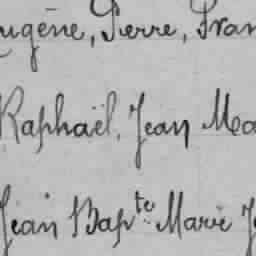 Eugène, Pierre, Fran
Raphaël, Jean Ma
Jean Bapte Marie J